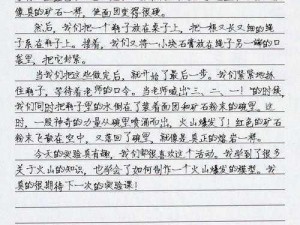 像真的矿石一样，使画面变得很硬。
然后，我们把一个瓶子放在桌子上，把一根又长又细的绳
子系在瓶子上。接着，我们又将一小块石膏放在绳子另一端的口
袋里，把它封紧。
当我们把这些做完后，就开始了最后一步。我们紧紧地抓
住瓶子，等待着老师的口令。当老师喊出“三、二、一！”的时候，
我们同时把瓶子里的水倒在了装着面团和矿石粉末的碗里。这
时，一股神奇的力量从碗里喷涌而出，火山爆发了！红色的矿石粉
末飞散在空中，又落回了碗里，就像是真正的熔岩一样。
今天的实验真有趣，我们都很喜欢这个活动。我学到了很多
关于火山的知识，也学会了如何制作一个火山爆发的模型。我
真的很期待下一次的实验课！